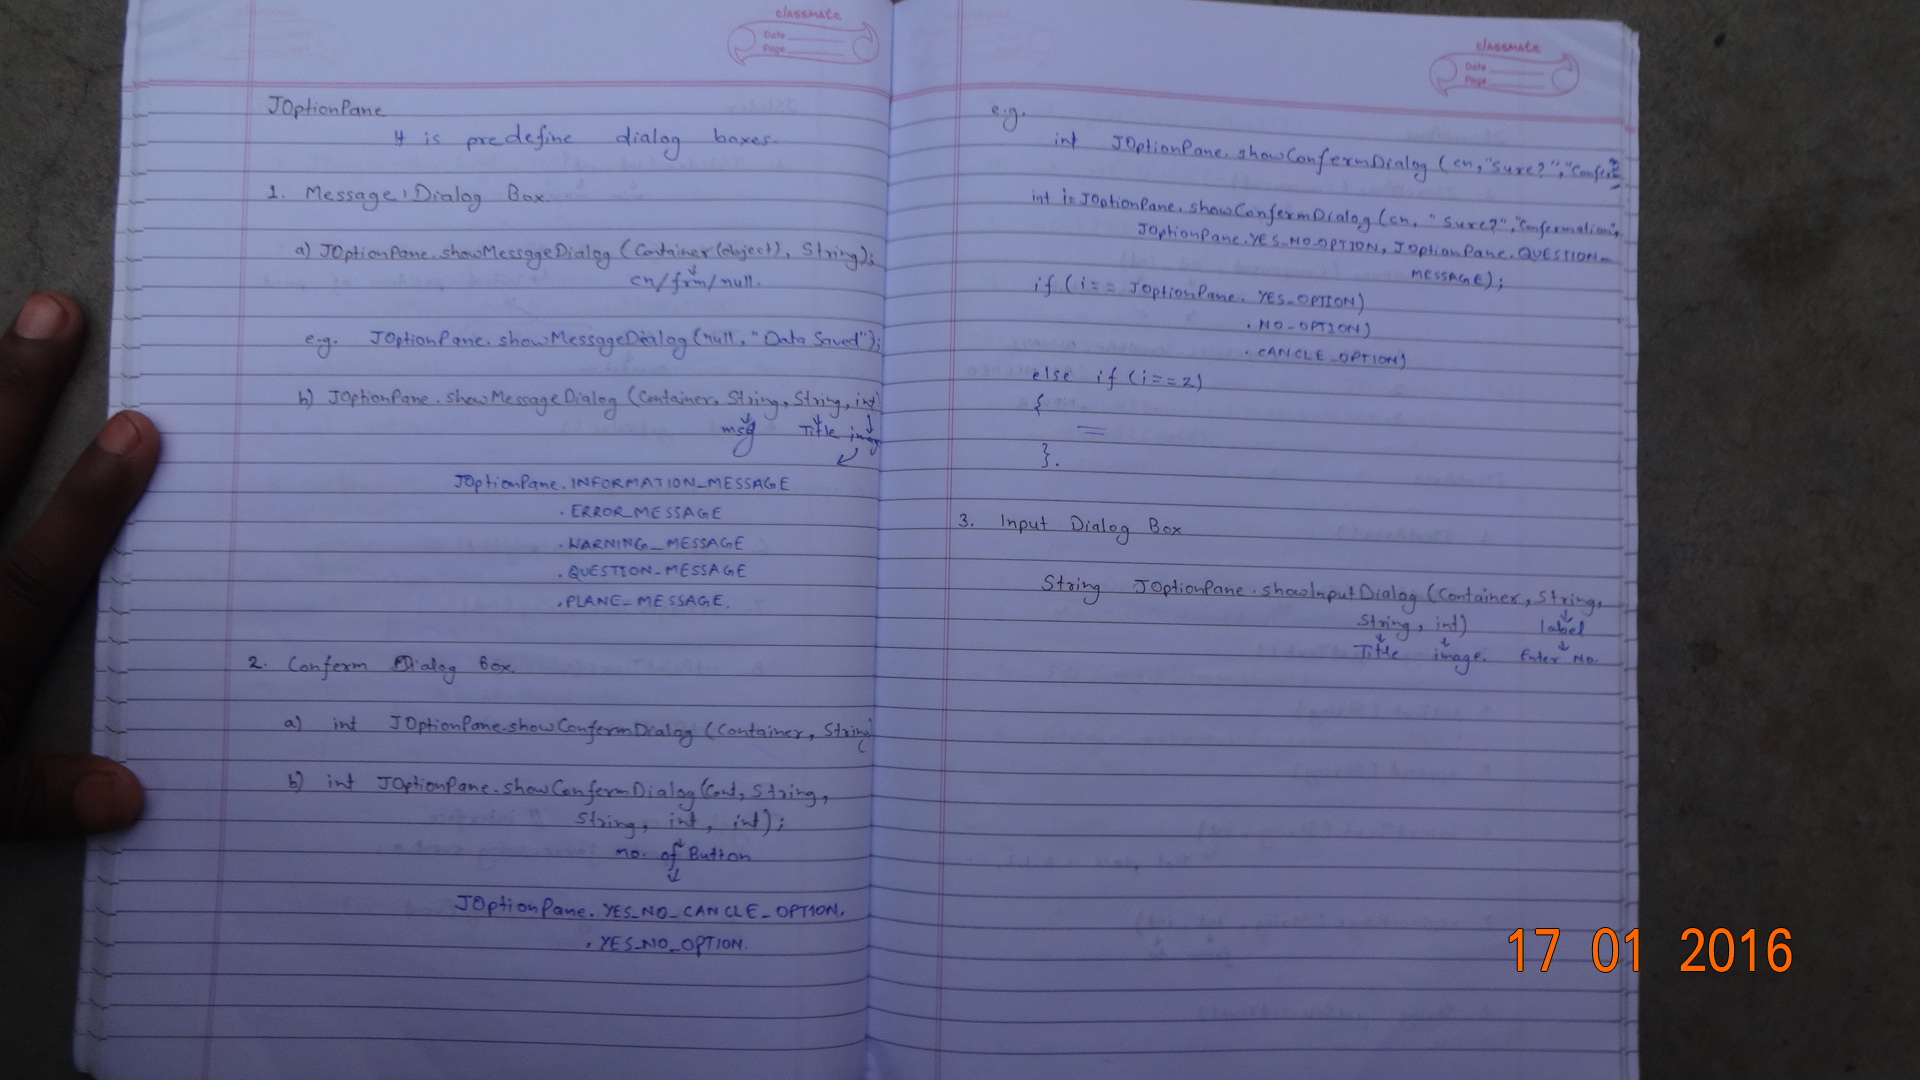 classmate
Date
Page
JOptionPane
It is predefine dialog boxes.
1. Message Dialog Box.
a) JOptionPane.showMessageDialog (Container(object), String);
cn/frm/null.
e.g. JOptionPane.showMessageDialog(null, "Data Saved");
b) JOptionPane.showMessageDialog (Container, String, String, int)
msg Title image
JOptionPane.INFORMATION_MESSAGE
.ERROR_MESSAGE
.WARNING_MESSAGE
.QUESTION_MESSAGE
.PLANE_MESSAGE.
2. Conferm Dialog Box.
a) int JOptionPane.showConfermDialog (Container, String)
b) int JOptionPane.showConfermDialog(Cont, String,
String, int, int);
no. of Button
JOptionPane.YES_NO_CANCLE_OPTION.
.YES_NO_OPTION.
classmate
Date
Page
e.g.
int JOptionPane.showConfermDialog (cn, "Sure?",
int i = JOptionPane.showConfermDialog (cn, "Sure?", "Confermation",
JOptionPane.YES_NO_OPTION, JOptionPane.QUESTION_
MESSAGE);
if (i == JOptionPane.YES_OPTION)
.NO_OPTION)
.CANCLE_OPTION)
else if (i==2)
{
}.
3. Input Dialog Box
String JOptionPane.showInputDialog (Container, String,
String, int) label
Title image. Enter No.
17 01 2016